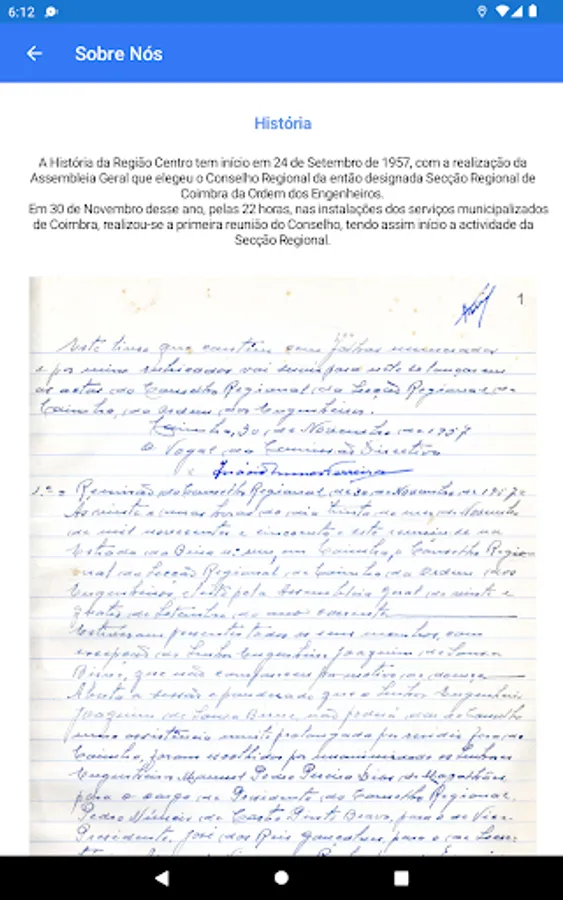 6:12
Sobre Nós
História
A História da Região Centro tem início em 24 de Setembro de 1957, com a realização da
Assembleia Geral que elegeu o Conselho Regional da então designada Secção Regional de
Coimbra da Ordem dos Engenheiros.
Em 30 de Novembro desse ano, pelas 22 horas, nas instalações dos serviços municipalizados
de Coimbra, realizou-se a primeira reunião do Conselho, tendo assim início a actividade da
Secção Regional.
1
Este livro que contém cem folhas numeradas
e por mim rubricadas vai
as actas do Conselho Regional da Secção Regional de
Coimbra, da Ordem dos Engenheiros.
Coimbra, 30 de Novembro de 1957
O Vogal da Comissão Directiva
1.ª = Reunião do Conselho Regional de 30 de Novembro de 1957 =
horas do dia trinta do mez de Novembro
de mil novecentos e cincoenta e sete
Estrada da Beira em Coimbra, o Conselho Regio-
nal da Secção Regional de Coimbra da Ordem dos
Engenheiros, eleito pela Assembleia Geral de vinte e
quatro de Setembro do ano corrente
Estiveram presentes todos os seus membros, com
excepção do Senhor Engenheiro Joaquim de Sousa
que não compareceu por motivo de doença
Aberta a sessão e ponderado que o Senhor Engenheiro
Joaquim de Sousa não poderá dar ao Conselho
uma assistência muito prolongada por residir fora de
Coimbra, foram escolhidos por unanimidade os Senhores
Engenheiros Manuel Pedro Pereira Dias de Magalhães
para o cargo de Presidente do Conselho Regional,
Pedro de Castro Pinto Bravo, para o de Vice-
Presidente, José dos Reis Gonçalves, para o de